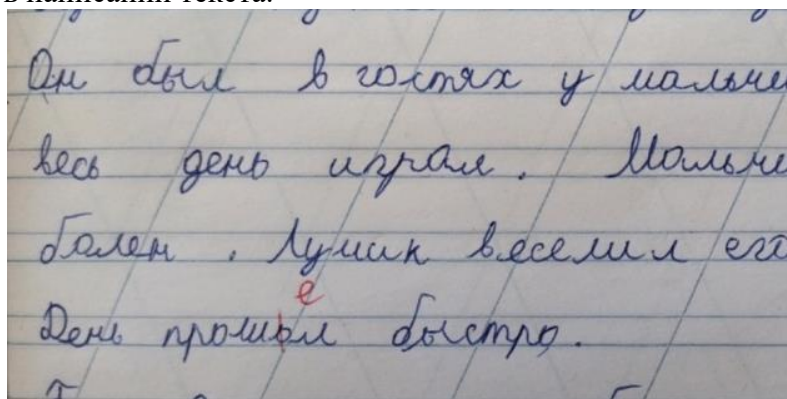 в написании текста.
Он был в гостях у мальчи
весь день играл. Мальчи
болен. Лучик веселил его
е
День прошол быстро.